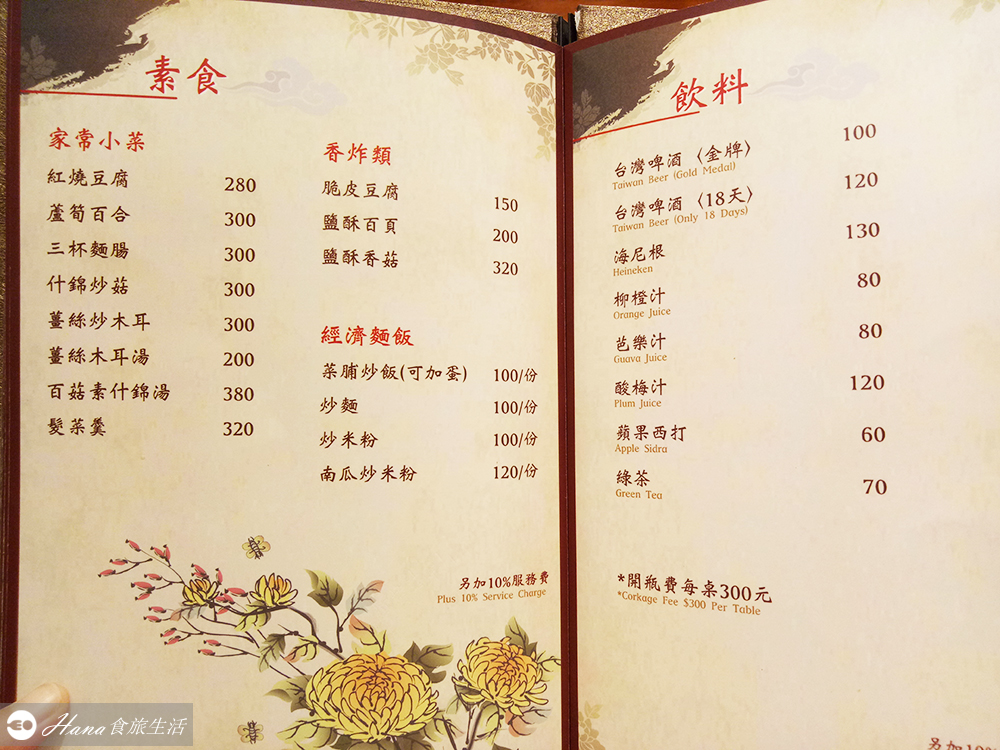 素食
家常小菜
紅燒豆腐 280
蘆筍百合 300
三杯麵腸 300
什錦炒菇 300
薑絲炒木耳 300
薑絲木耳湯 200
百菇素什錦湯 380
髮菜羹 320
香炸類
脆皮豆腐 150
鹽酥百頁 200
鹽酥香菇 320
經濟麵飯
菜脯炒飯(可加蛋) 100/份
炒麵 100/份
炒米粉 100/份
南瓜炒米粉 120/份
另加10%服務費
Plus 10% Service Charge
飲料
台灣啤酒〈金牌〉 100
Taiwan Beer (Gold Medal)
台灣啤酒〈18天〉 120
Taiwan Beer (Only 18 Days)
海尼根 130
Heineken
柳橙汁 80
Orange Juice
芭樂汁 80
Guava Juice
酸梅汁 120
Plum Juice
蘋果西打 60
Apple Sidra
綠茶 70
Green Tea
*開瓶費每桌300元
*Corkage Fee $300 Per Table
另加10%
Hana食旅生活